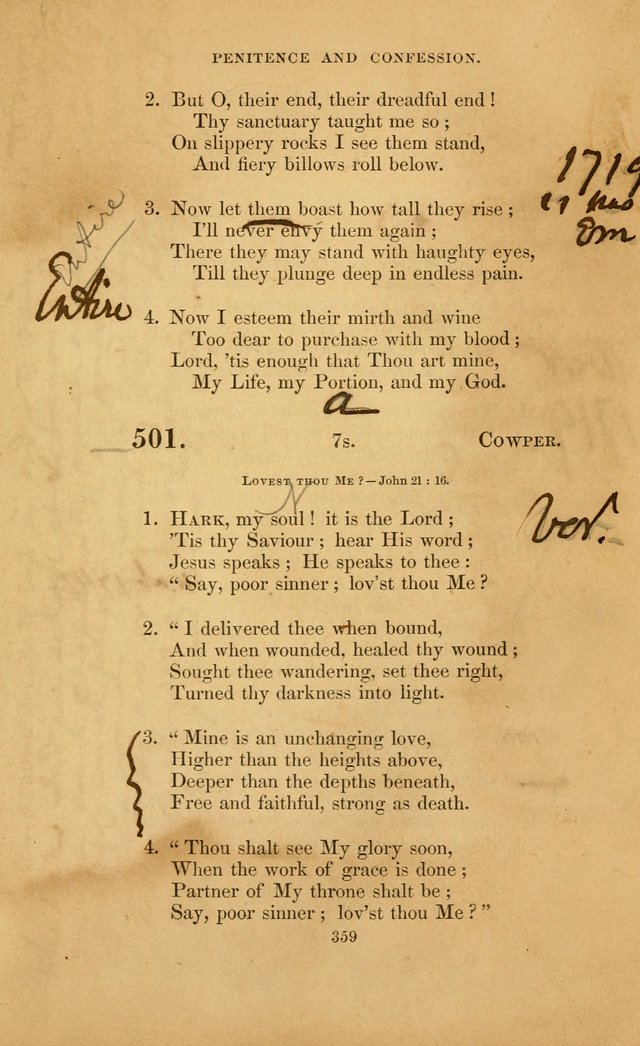 PENITENCE AND CONFESSION.
2. But O, their end, their dreadful end!
Thy sanctuary taught me so;
On slippery rocks I see them stand,
And fiery billows roll below.
1719
3. Now let them boast how tall they rise;
I'll never envy them again;
There they may stand with haughty eyes,
Till they plunge deep in endless pain.
Entire
Entire
4. Now I esteem their mirth and wine
Too dear to purchase with my blood;
Lord, 'tis enough that Thou art mine,
My Life, my Portion, and my God.
a
501. 7s. COWPER.
LOVEST THOU ME?—John 21 : 16.
1. HARK, my soul! it is the Lord;
'Tis thy Saviour; hear His word;
Jesus speaks; He speaks to thee:
“Say, poor sinner; lov'st thou Me?
2. “I delivered thee when bound,
And when wounded, healed thy wound;
Sought thee wandering, set thee right,
Turned thy darkness into light.
3. “Mine is an unchanging love,
Higher than the heights above,
Deeper than the depths beneath,
Free and faithful, strong as death.
4. “Thou shalt see My glory soon,
When the work of grace is done;
Partner of My throne shalt be;
Say, poor sinner; lov'st thou Me?”
359